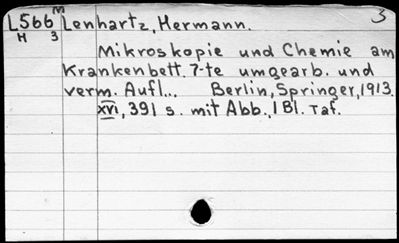 L566 M Lenhartz, Hermann. 3
H 3
Mikroskopie und Chemie am
Krankenbett. 7-te umgearb. und
verm. Aufl... Berlin, Springer, 1913.
XVI, 391 s. mit Abb., 1 Bl. Taf.